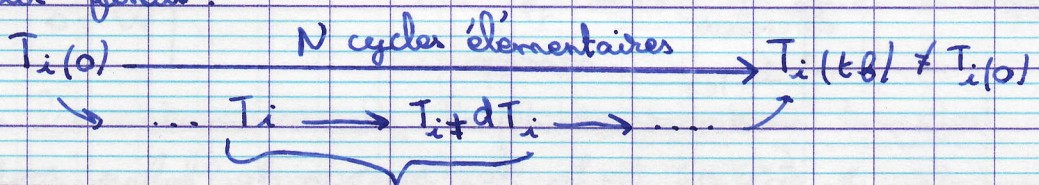 N cycles élémentaires
Ti(0) → Ti(tf) ≠ Ti(0)
... Ti → Ti + dTi → ....